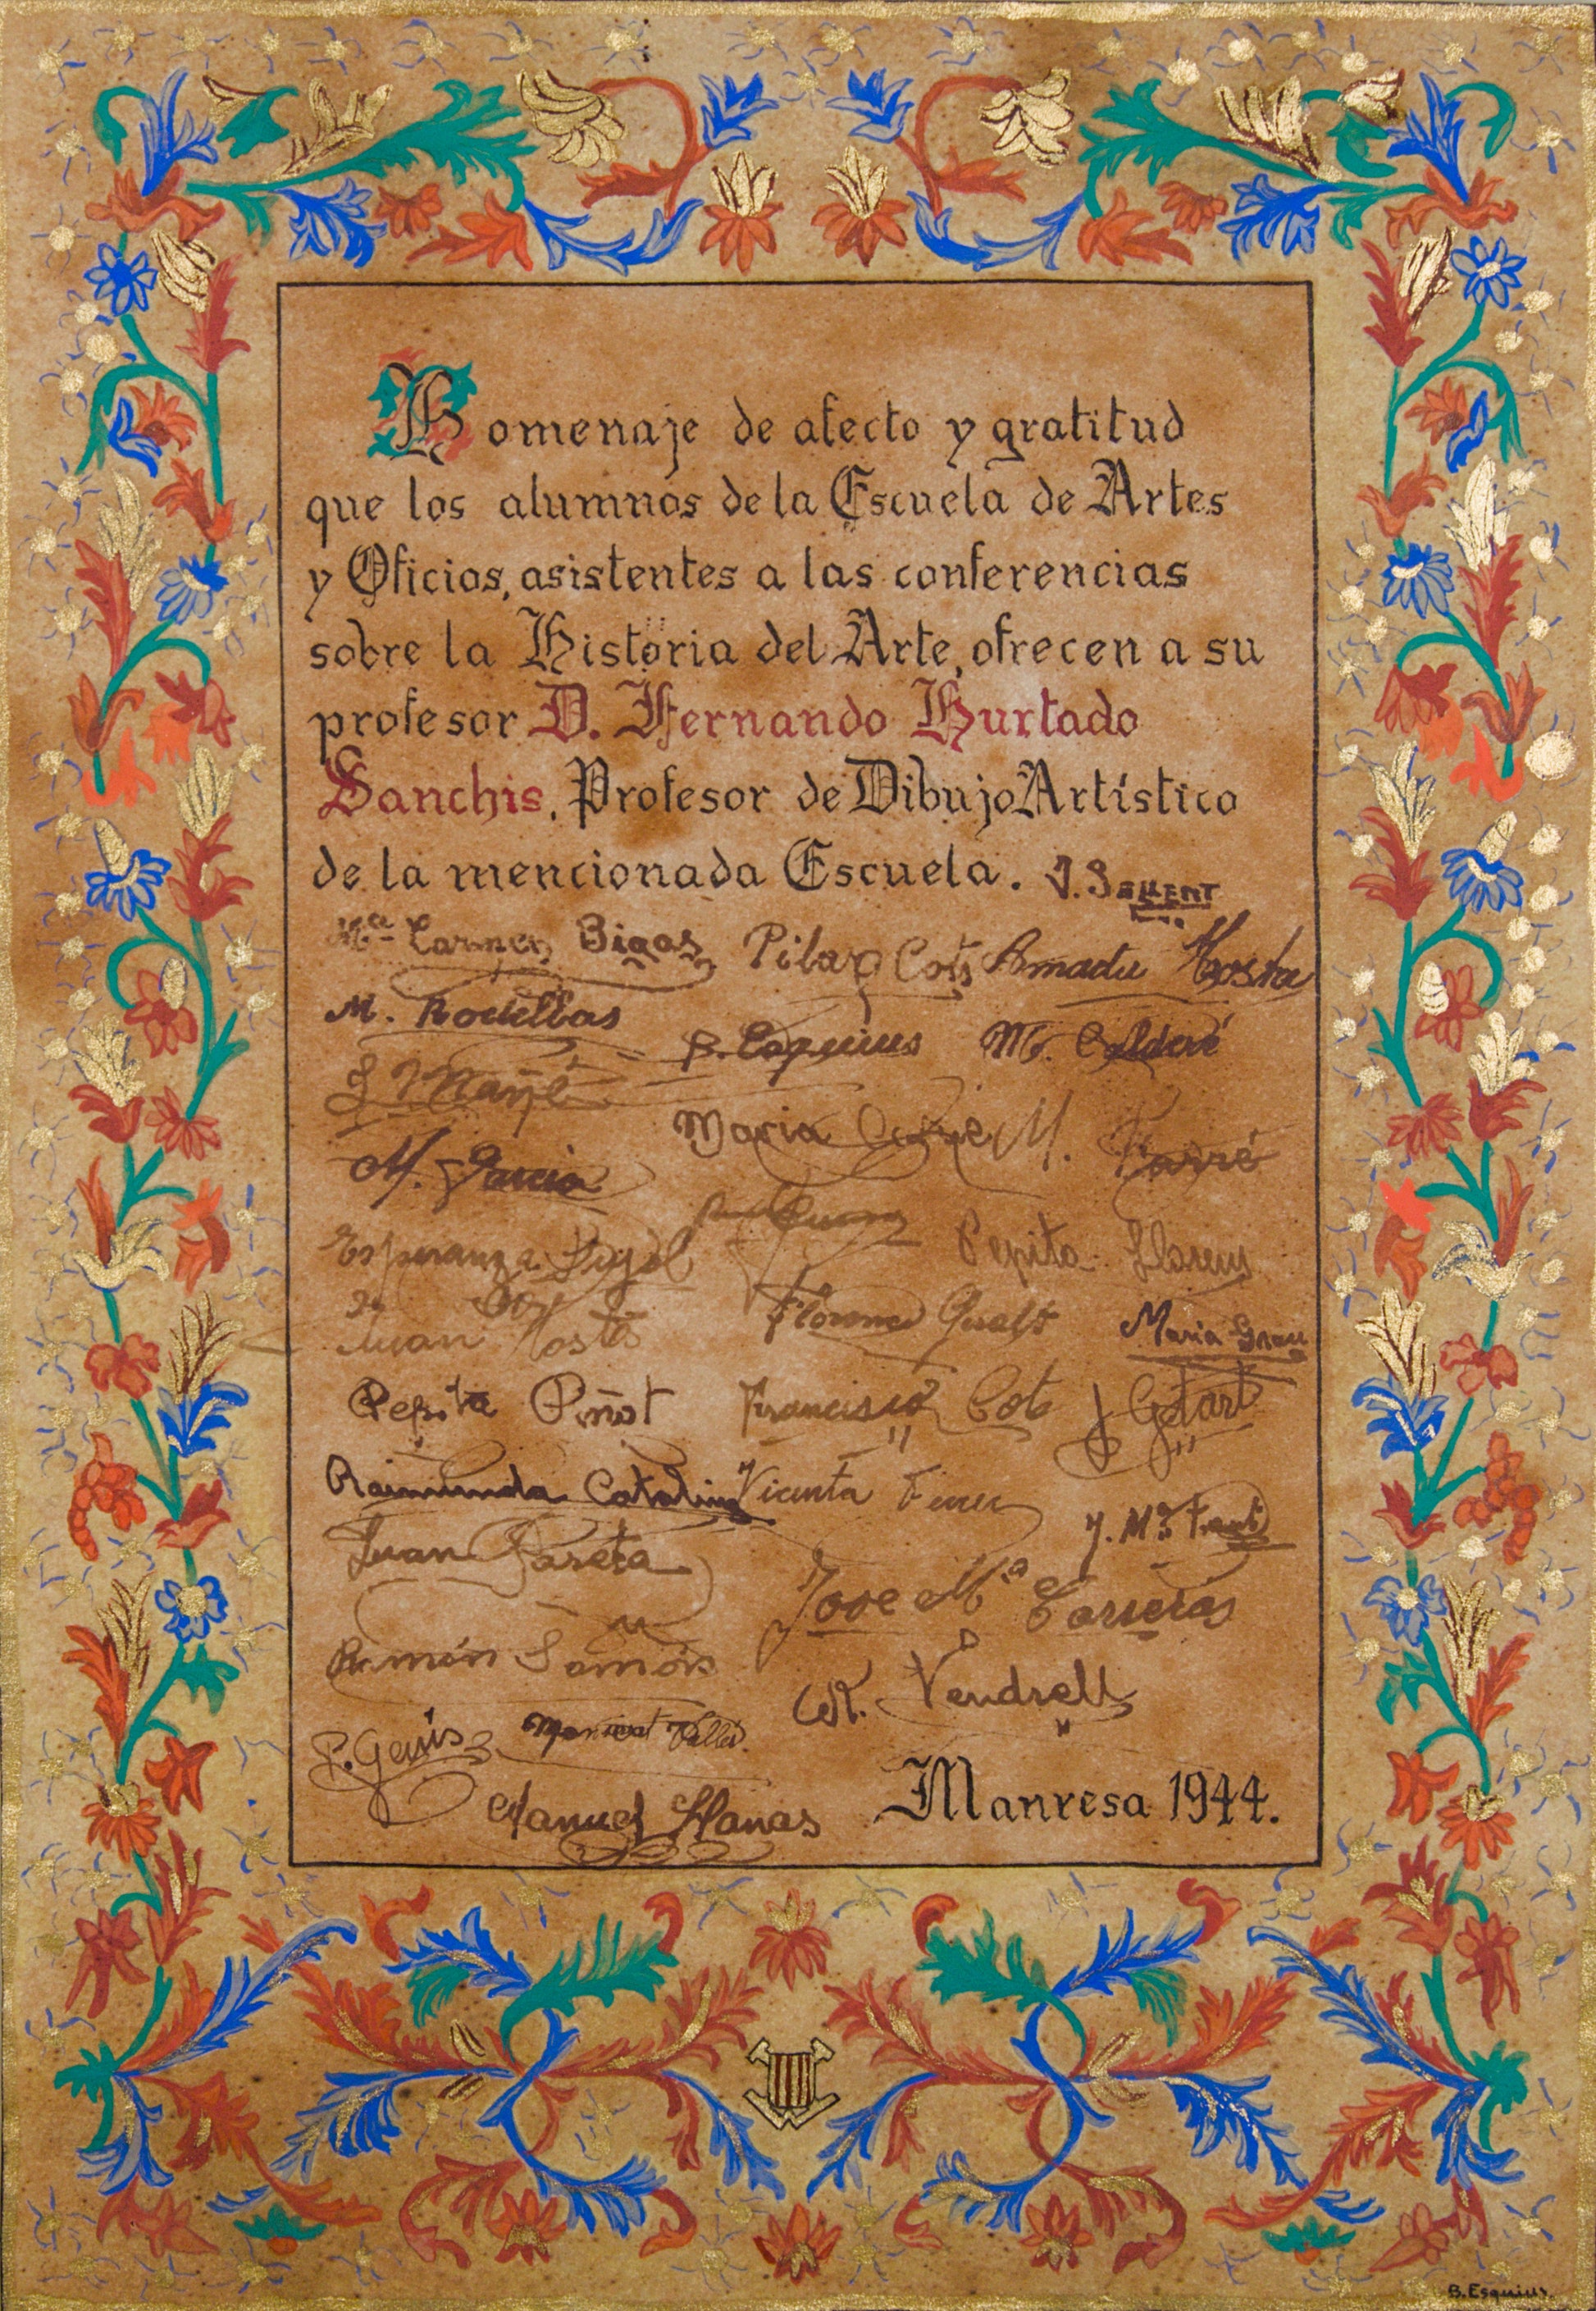 Homenaje de afecto y gratitud
que los alumnos de la Escuela de Artes
y Oficios, asistentes a las conferencias
sobre la Historia del Arte, ofrecen a su
profesor D. Fernando Hurtado
Sanchis, Profesor de Dibujo Artístico
de la mencionada Escuela.
Mª Carmen Bigas Pilar Cots Amadeu
M. B. Esquius M. Calderé
Mañé
Maria M. Farré
M. Garcia
Esperanza Pepita Llorens
Juan Maria Grau
Pepita Piñot Francisco Cots J Getart
Raimunda Catalina Vicenta Ferrer
Juan J. Mª
Jose Mª Carreras
Ramón
R. Vendrell
P. Genís Montserrat
Manuel Llanas Manresa 1944.
B. Esquius.